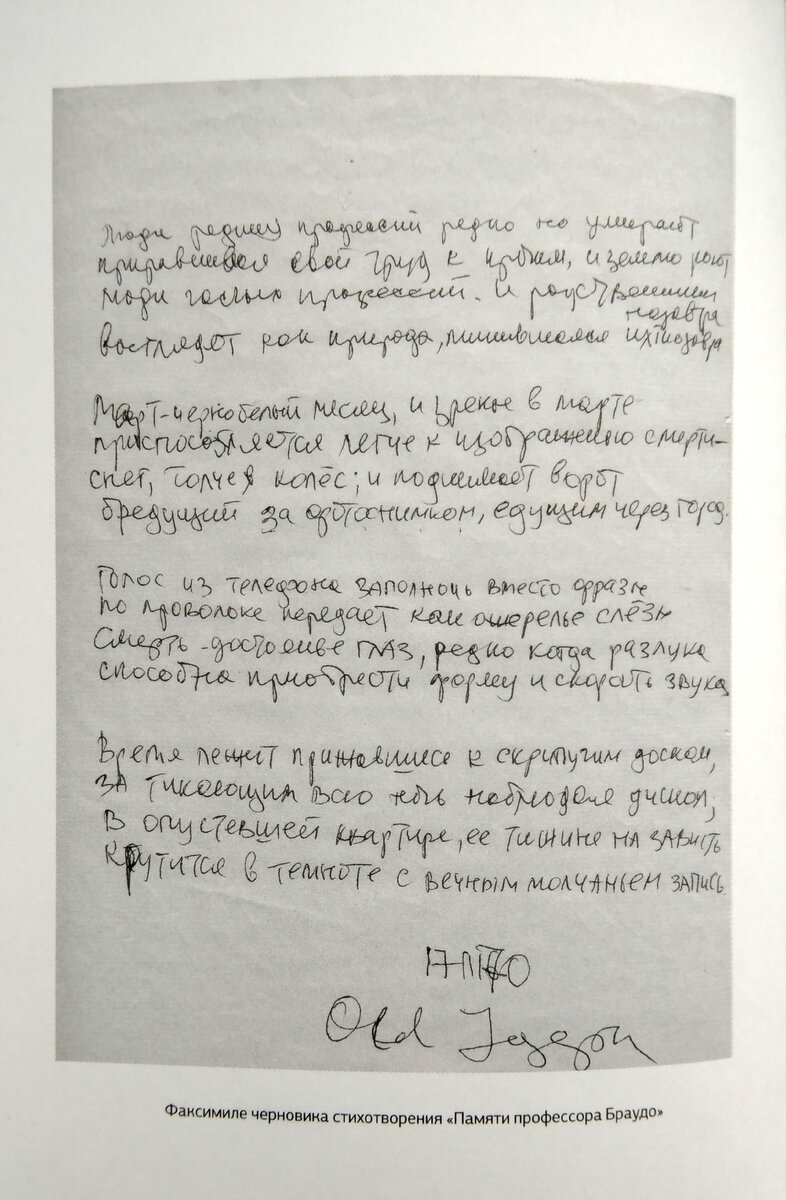 Люди редких профессий редко но умирают
приравнивая свой труд к прочим, и землю роют
люди голых профессий. И родственники назавтра
выглядят как природа, лишившаяся ихтиозавра

Март – чернобелый месяц, и зренье в марте
приспособляется легче к изображению смерти –
снег, толчея колёс; и поднимает ворот
бредущий за фотоснимком, едущим через город.

Голос из телефона за полночь вместо фразы
по проволоке передаёт как ожерелье слёзы
Смерть – достояние глаз, редко когда разлука
способна приобрести форму и скорость звука

Время лежит прижавшись к скрипучим доскам,
за тикающим всю ночь наблюдая диском;
В опустевшей квартире, ее тишине на зависть
крутится в темноте с вечным молчаньем запись.

Old
Факсимиле черновика стихотворения «Памяти профессора Браудо»